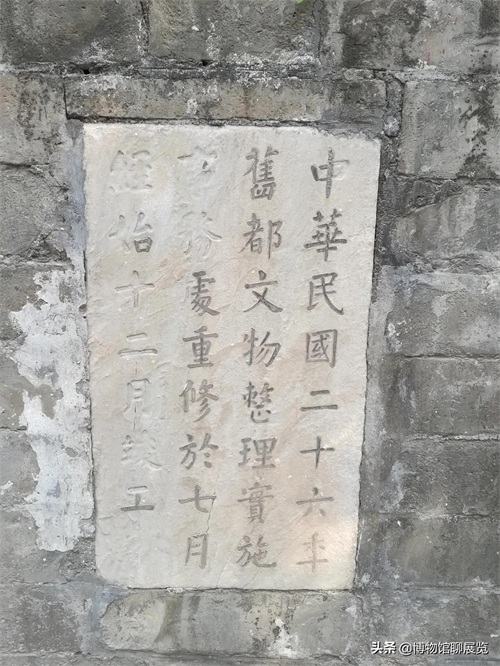 中華民國二十六年
舊都文物整理實施
事務處重修於七月
經始十二月竣工
头条 @博物馆聊展览